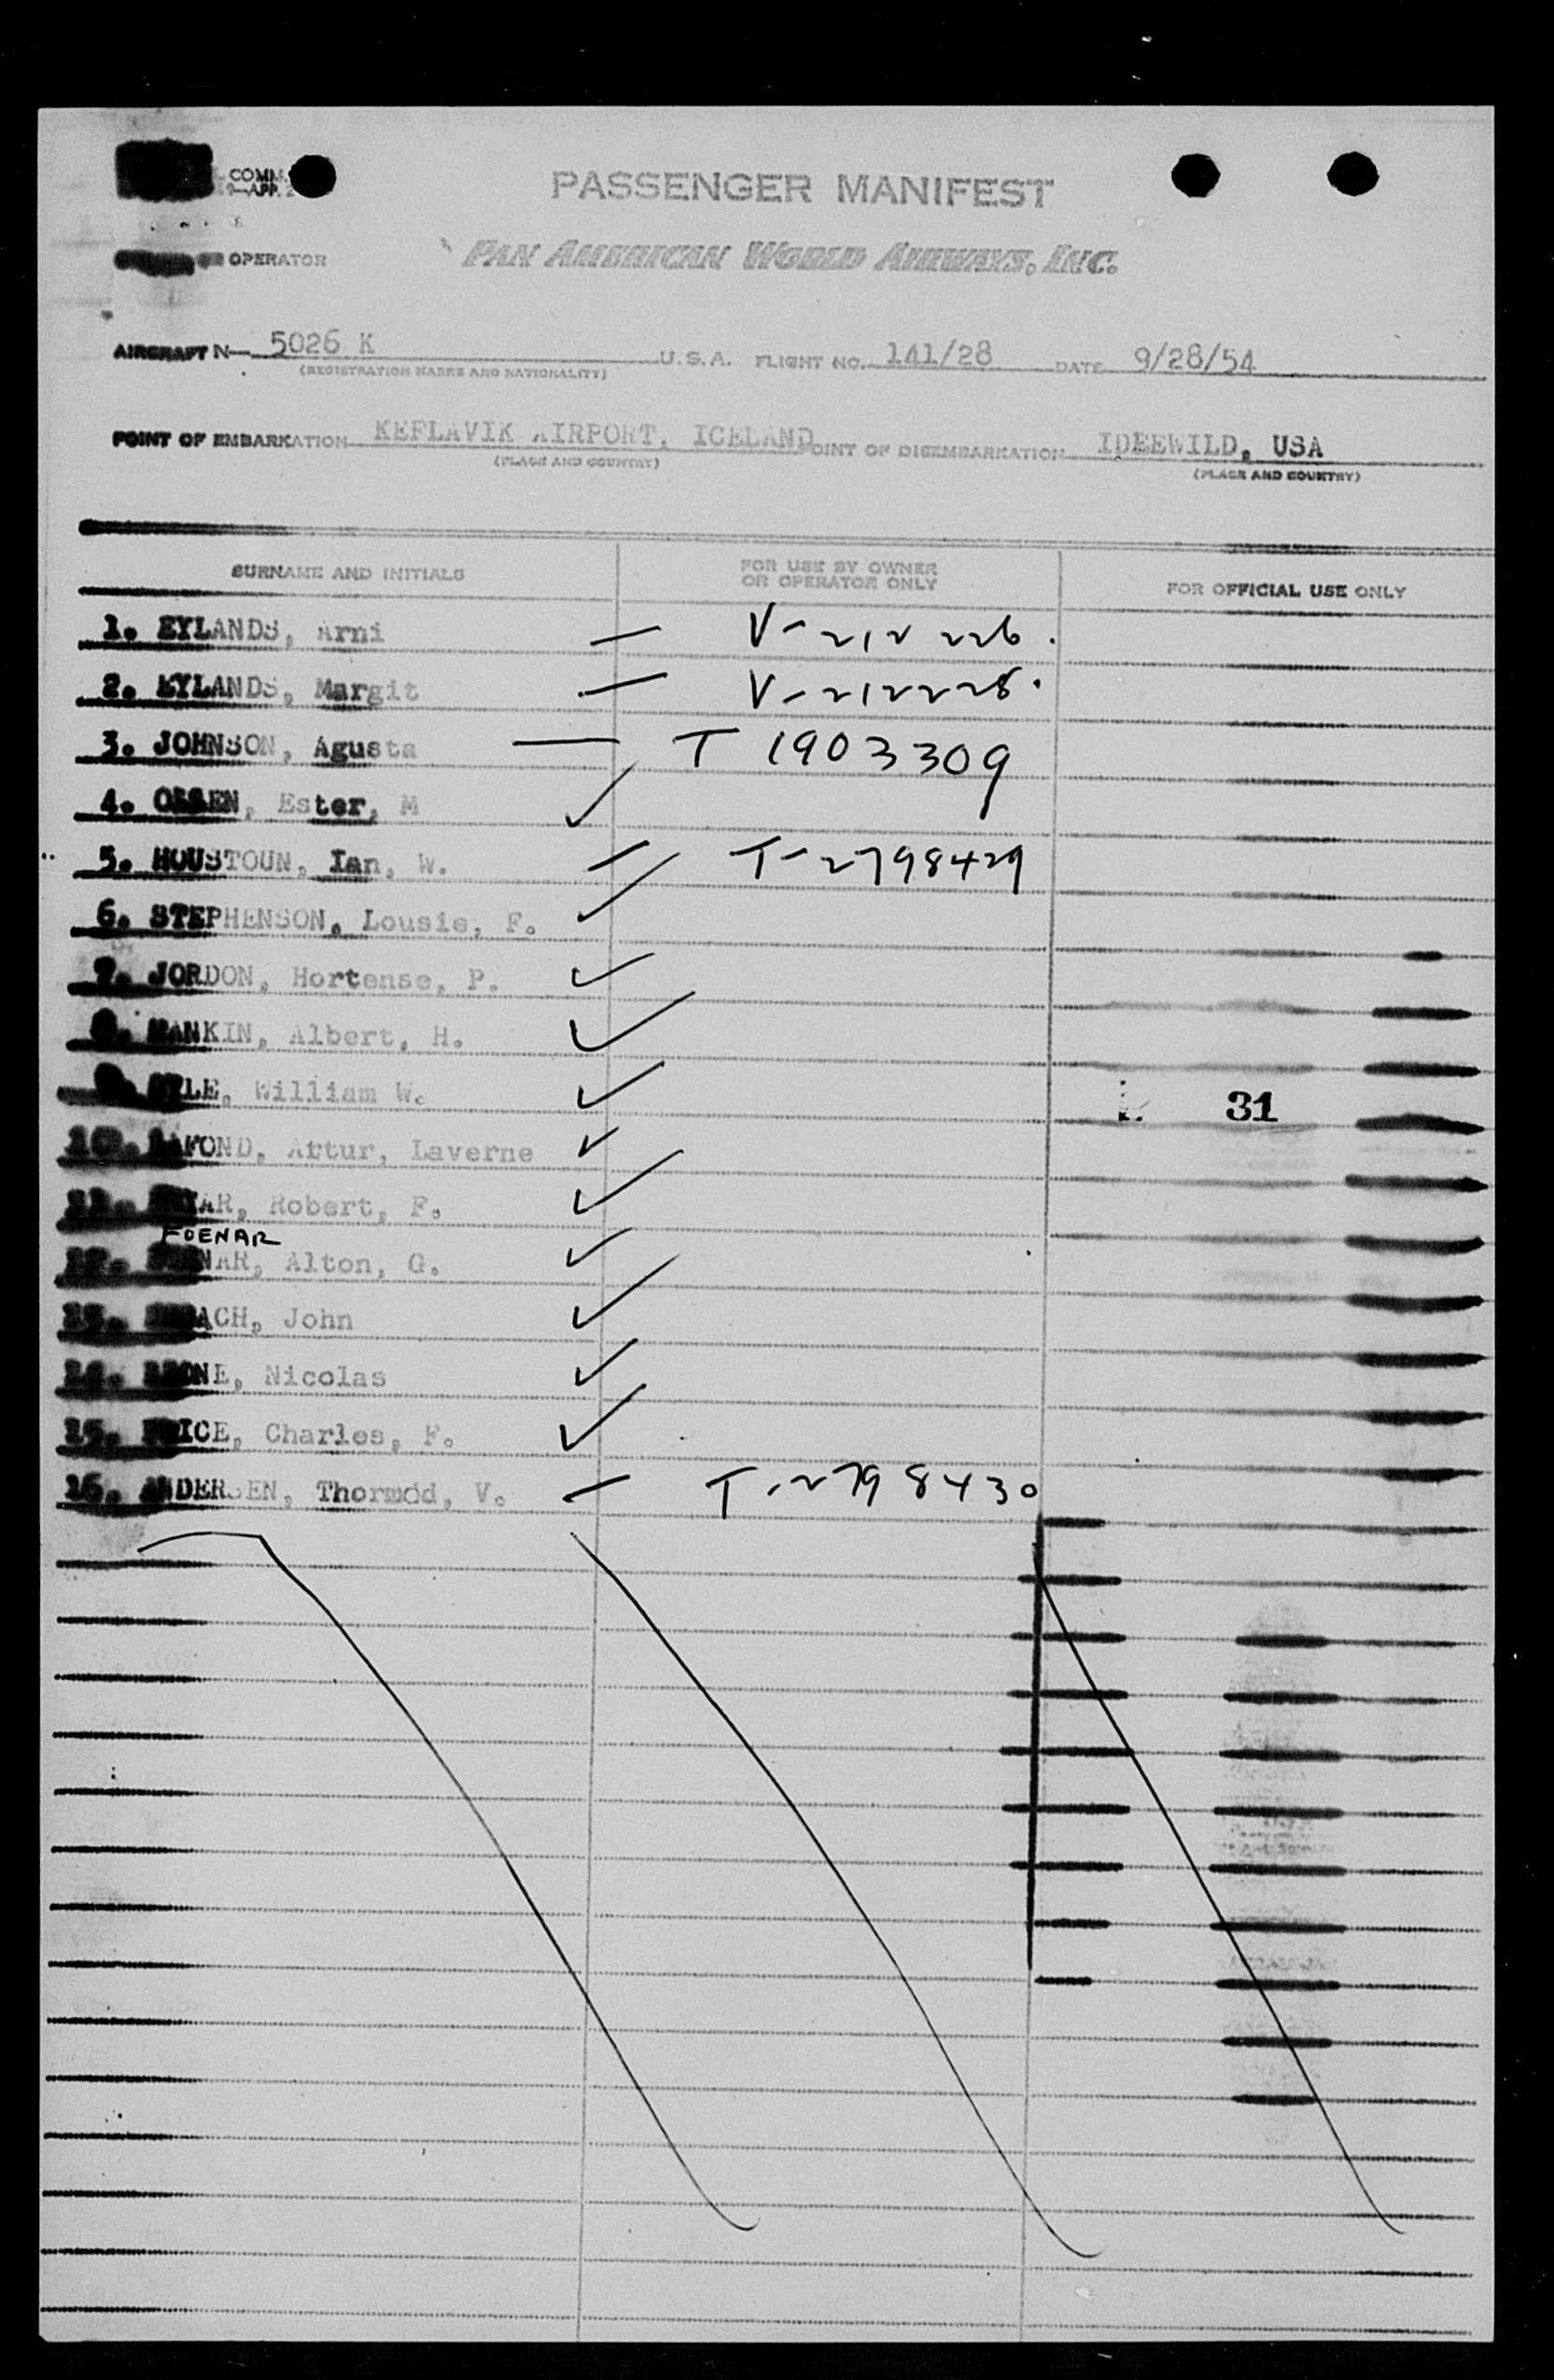 COMM.
APP. 2
PASSENGER MANIFEST
OPERATOR
PAN AMERICAN WORLD AIRWAYS, INC.
AIRCRAFT N— 5026 K U.S.A. FLIGHT NO. 141/28 DATE 9/28/54
(REGISTRATION MARKS AND NATIONALITY)
POINT OF EMBARKATION KEFLAVIK AIRPORT, ICELAND POINT OF DISEMBARKATION IDEEWILD, USA
(PLACE AND COUNTRY) (PLACE AND COUNTRY)
SURNAME AND INITIALS FOR USE BY OWNER OR OPERATOR ONLY FOR OFFICIAL USE ONLY
1. EYLANDS, Arni — V-212226.
2. EYLANDS, Margit — V-212228.
3. JOHNSON, Agusta — T 1903309
4. OLSEN, Ester, M ✓
5. HOUSTOUN, Ian, W. — T-2798429
6. STEPHENSON, Lousie, F. ✓
7. JORDON, Hortense, P. ✓
8. MANKIN, Albert, H. ✓
William W. ✓ 31
10. LAFOND, Artur, Laverne ✓
11. Robert, F. ✓
FOENAR
12. Alton, G. ✓
13. John ✓
14. Nicolas ✓
15. PRICE, Charles, F. ✓
16. ANDERSEN, Thormod, V. — T-2798430